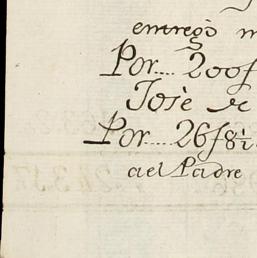 entregó m
Por.... 200f
Josè de
Por..... 26f8½
del Padre